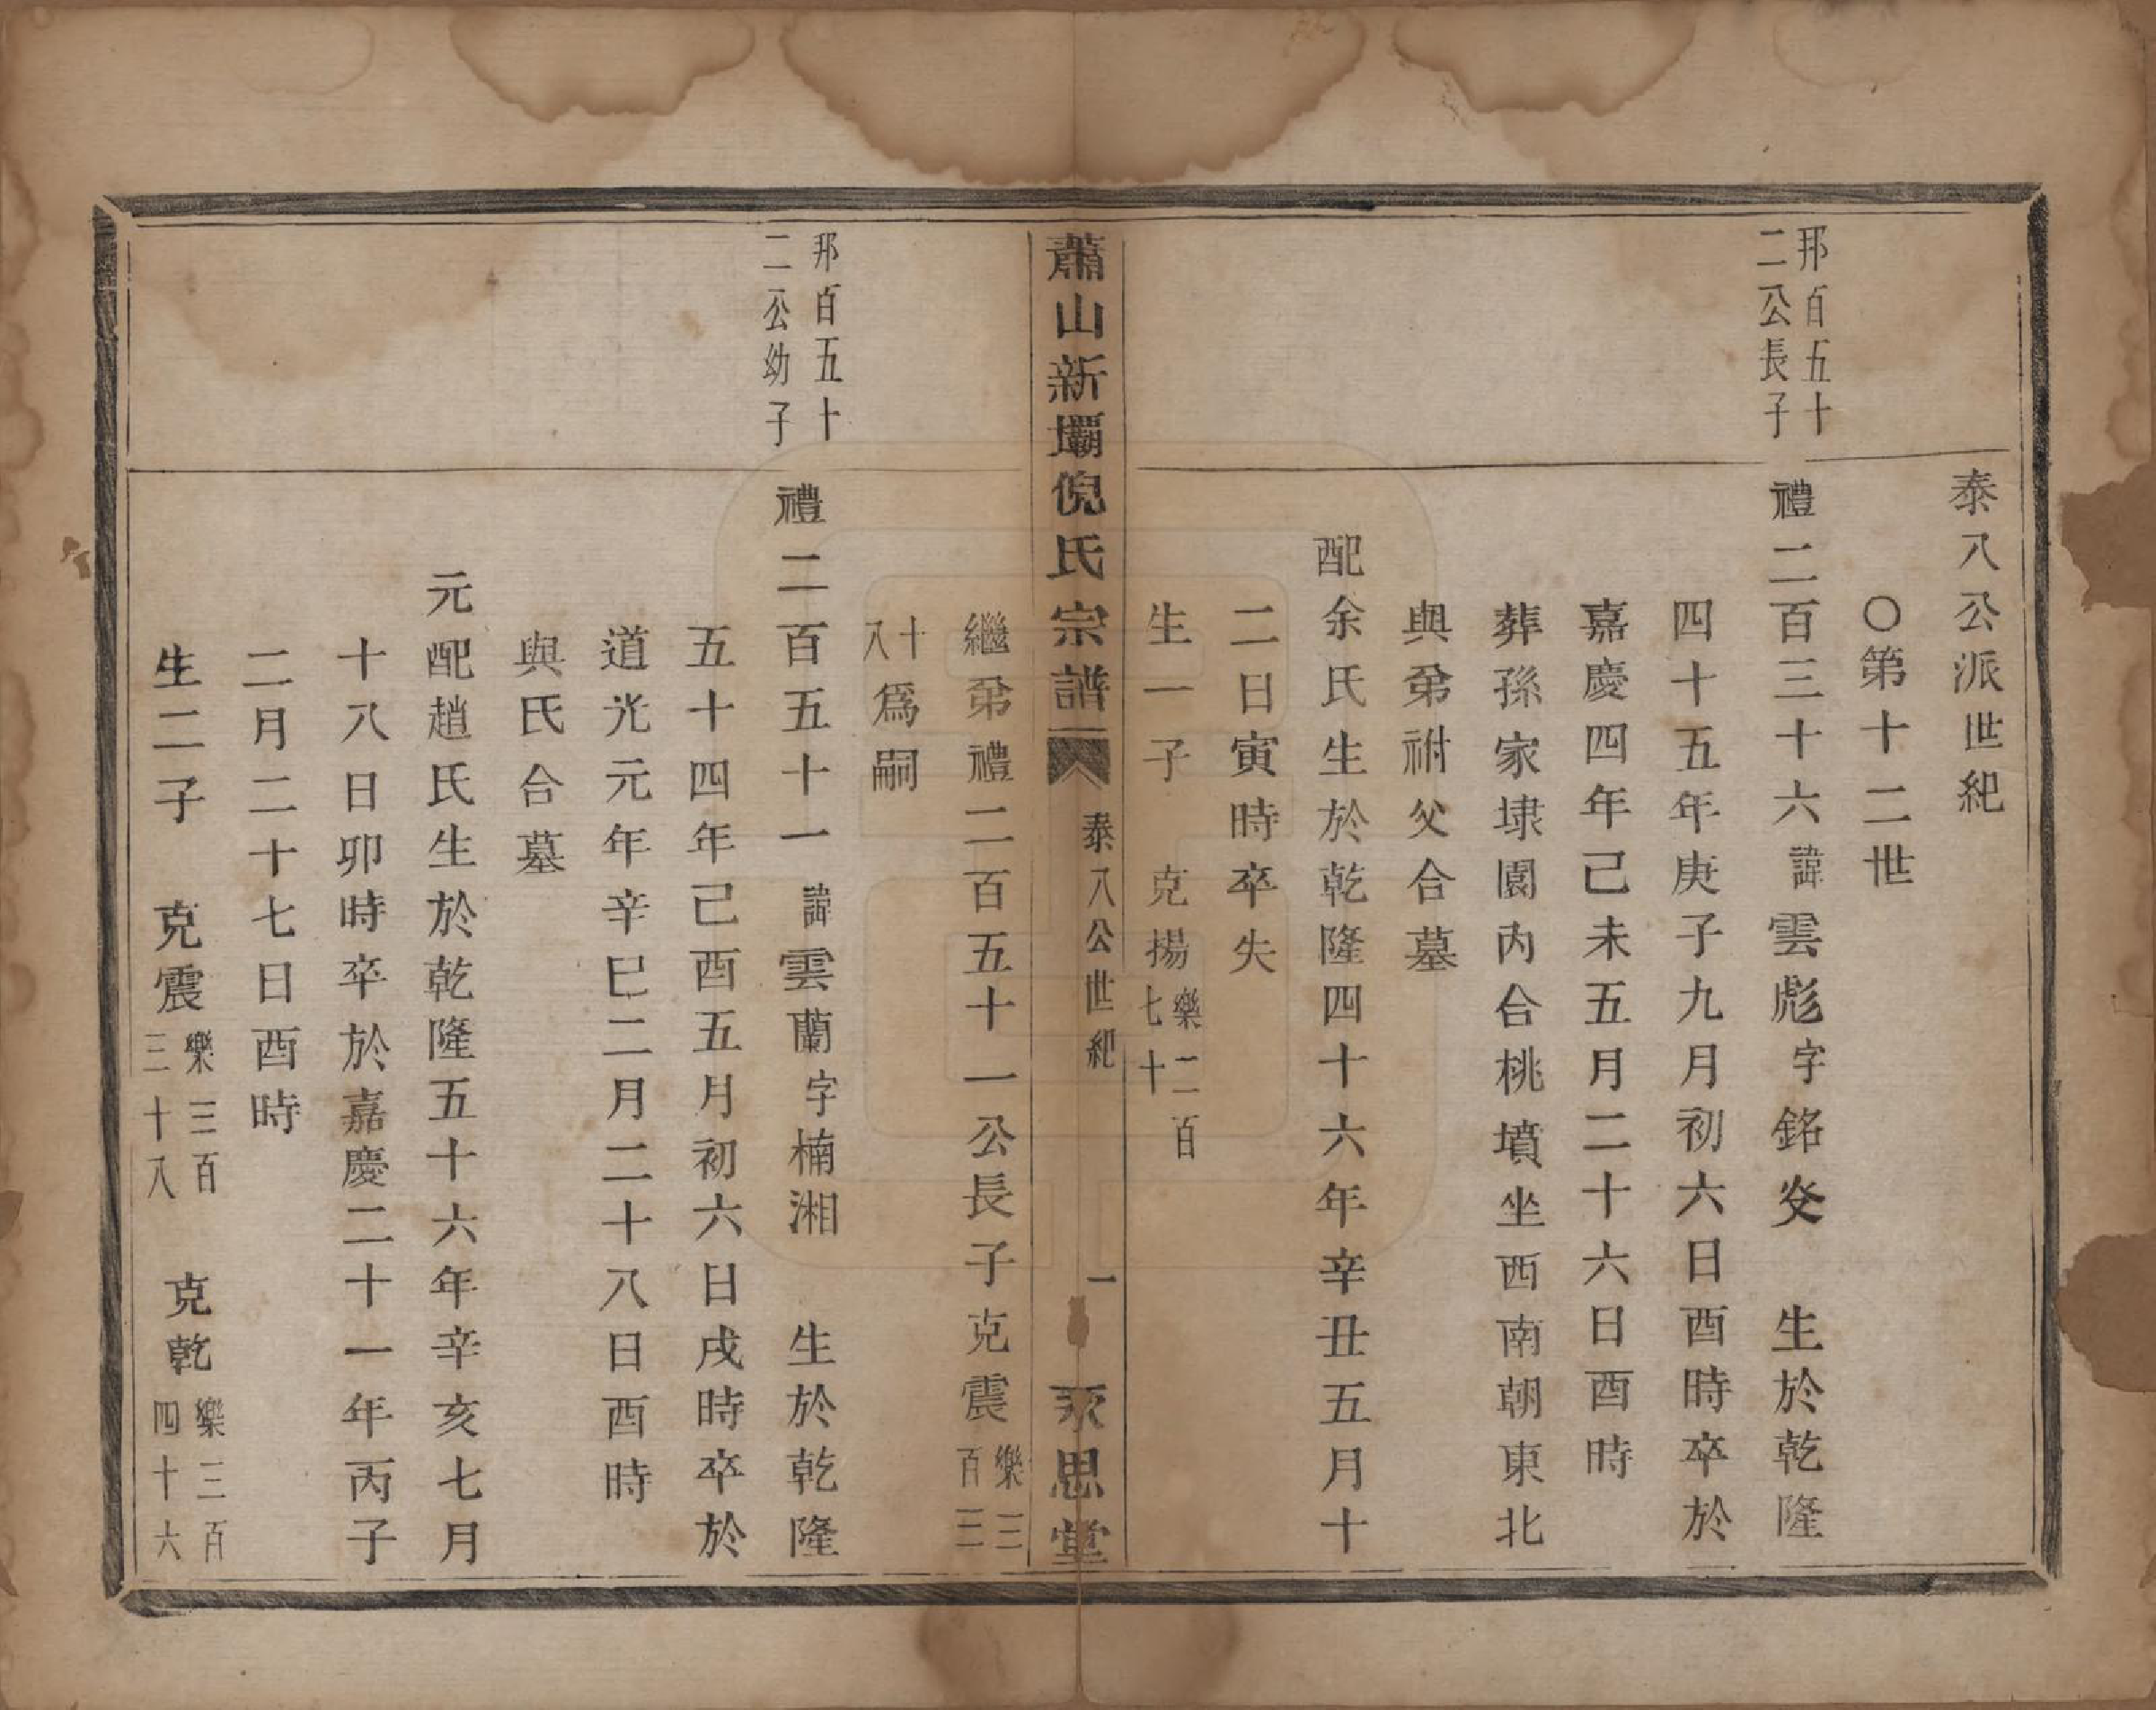 泰八公派世紀
○第十二世
邦百五十
二公長子
禮二百三十六諱雲彪字銘炎　生於乾隆
四十五年庚子九月初六日酉時卒於
嘉慶四年己未五月二十六日酉時
葬孫家埭園內合桃墳坐西南朝東北
與弟祔父合墓
配余氏生於乾隆四十六年辛丑五月十
二日寅時卒失
生一子　克揚樂二百七十
蕭山新壩倪氏宗譜
泰八公世紀
一
永思堂
繼弟禮二百五十一公長子克震樂三百三
十八為嗣
邦百五十
二公幼子
禮二百五十一諱雲蘭字楠湘　生於乾隆
五十四年己酉五月初六日戌時卒於
道光元年辛巳二月二十八日酉時
與氏合墓
元配趙氏生於乾隆五十六年辛亥七月
十八日卯時卒於嘉慶二十一年丙子
二月二十七日酉時
生二子　克震樂三百三十八　克乾樂三百四十六